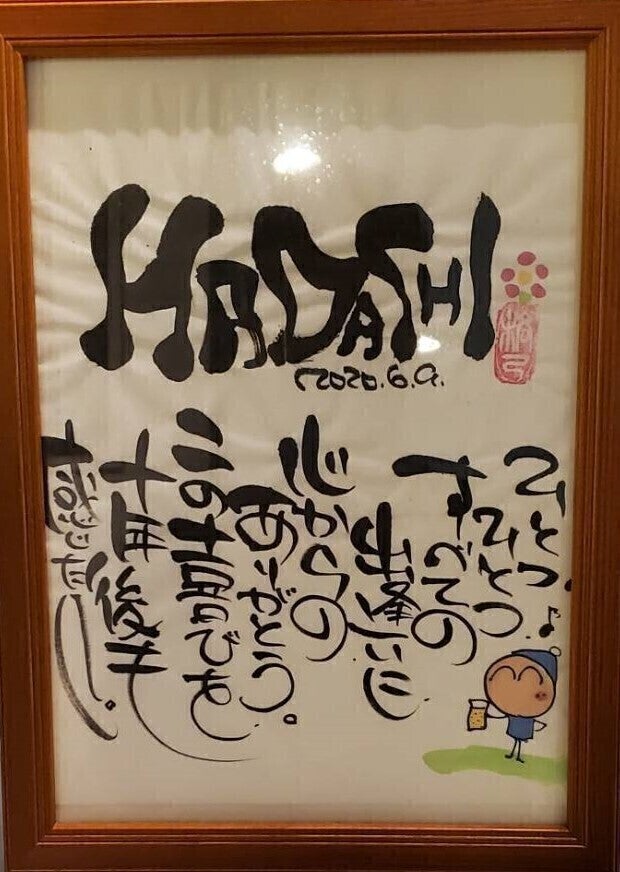 HADASHI
2020.6.9.
ひとつ
ひとつ♪
すべての
出逢いに
心からの
ありがとう。
この でも
十年